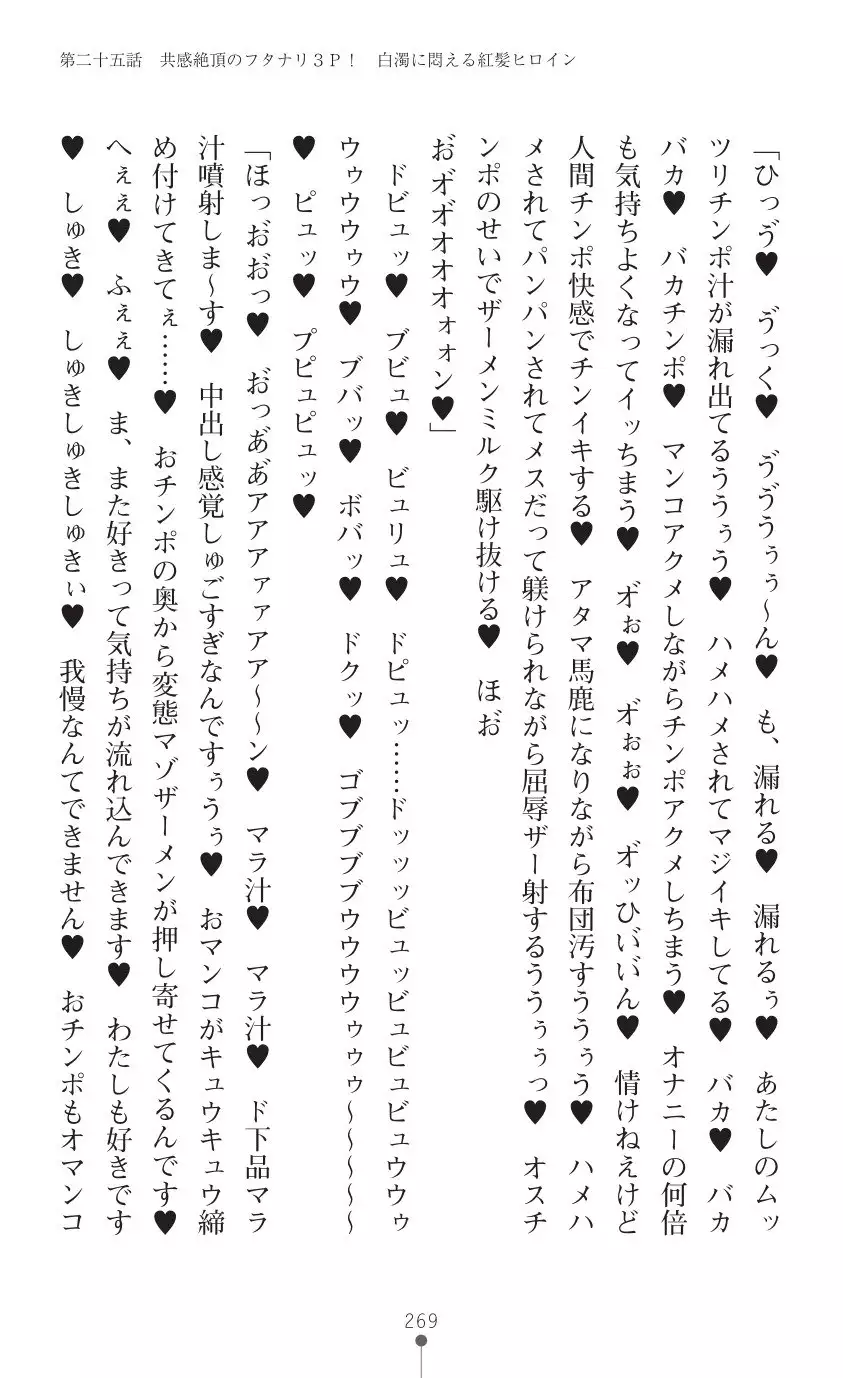 第二十五話　共感絶頂のフタナリ３Ｐ！　白濁に悶える紅髪ヒロイン
「ひっゔ♥　ゔっく♥　ゔゔうぅぅ～ん♥　も、漏れる♥　漏れるぅ♥　あたしのムッ
ツリチンポ汁が漏れ出てるううぅう♥　ハメハメされてマジイキしてる♥　バカ♥　バカ
バカ♥　バカチンポ♥　マンコアクメしながらチンポアクメしちまう♥　オナニーの何倍
も気持ちよくなってイッちまう♥　オ゛ぉ♥　オ゛ぉぉ♥　オ゛ッひい゛い゛ん♥　情けねえけど
人間チンポ快感でチンイキする♥　アタマ馬鹿になりながら布団汚すううぅう♥　ハメハ
メされてパンパンされてメスだって躾けられながら屈辱ザー射するううぅぅっ♥　オスチ
ンポのせいでザーメンミルク駆け抜ける♥　ほお゛
お゛オ゛オ゛オオオォォン♥」
　ドビュッ♥　ブビュ♥　ビュリュ♥　ドピュッ……ドッッッビュッビュビュビュウウゥ
ウゥウウゥウ♥　ブバッ♥　ボバッ♥　ドクッ♥　ゴブブブブウウウウゥゥゥ～～～～～
♥　ピュッ♥　プピュピュッ♥
「ほっお゛お゛っ♥　お゛っあ゛あ゛アアアァァアア～～ン♥　マラ汁♥　マラ汁♥　ド下品マラ
汁噴射しま～す♥　中出し感覚しゅごすぎなんですぅうぅ♥　おマンコがキュウキュウ締
め付けてきてぇ……♥　おチンポの奥から変態マゾザーメンが押し寄せてくるんです♥
へぇぇ♥　ふぇぇ♥　ま、また好きって気持ちが流れ込んできます♥　わたしも好きです
♥　しゅき♥　しゅきしゅきしゅきぃ♥　我慢なんてできません♥　おチンポもオマンコ
269